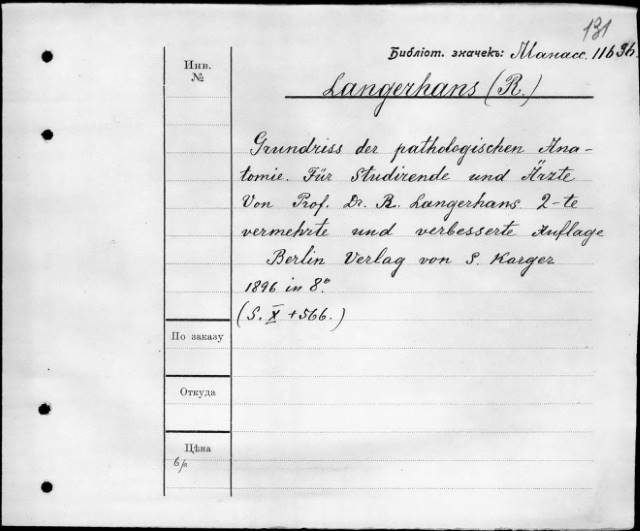 131
Библіот. значекъ: Манасс. 11696.
Инв.
№
Langerhans (R.)
Grundriss der pathologischen Ana-
tomie. Für Studirende und Ärzte
Von Prof. Dr. R. Langerhans. 2-te
vermehrte und verbesserte Auflage
Berlin Verlag von S. Karger
1896 in 8.°
(S. X + 566.)
По заказу
Откуда
Цѣна